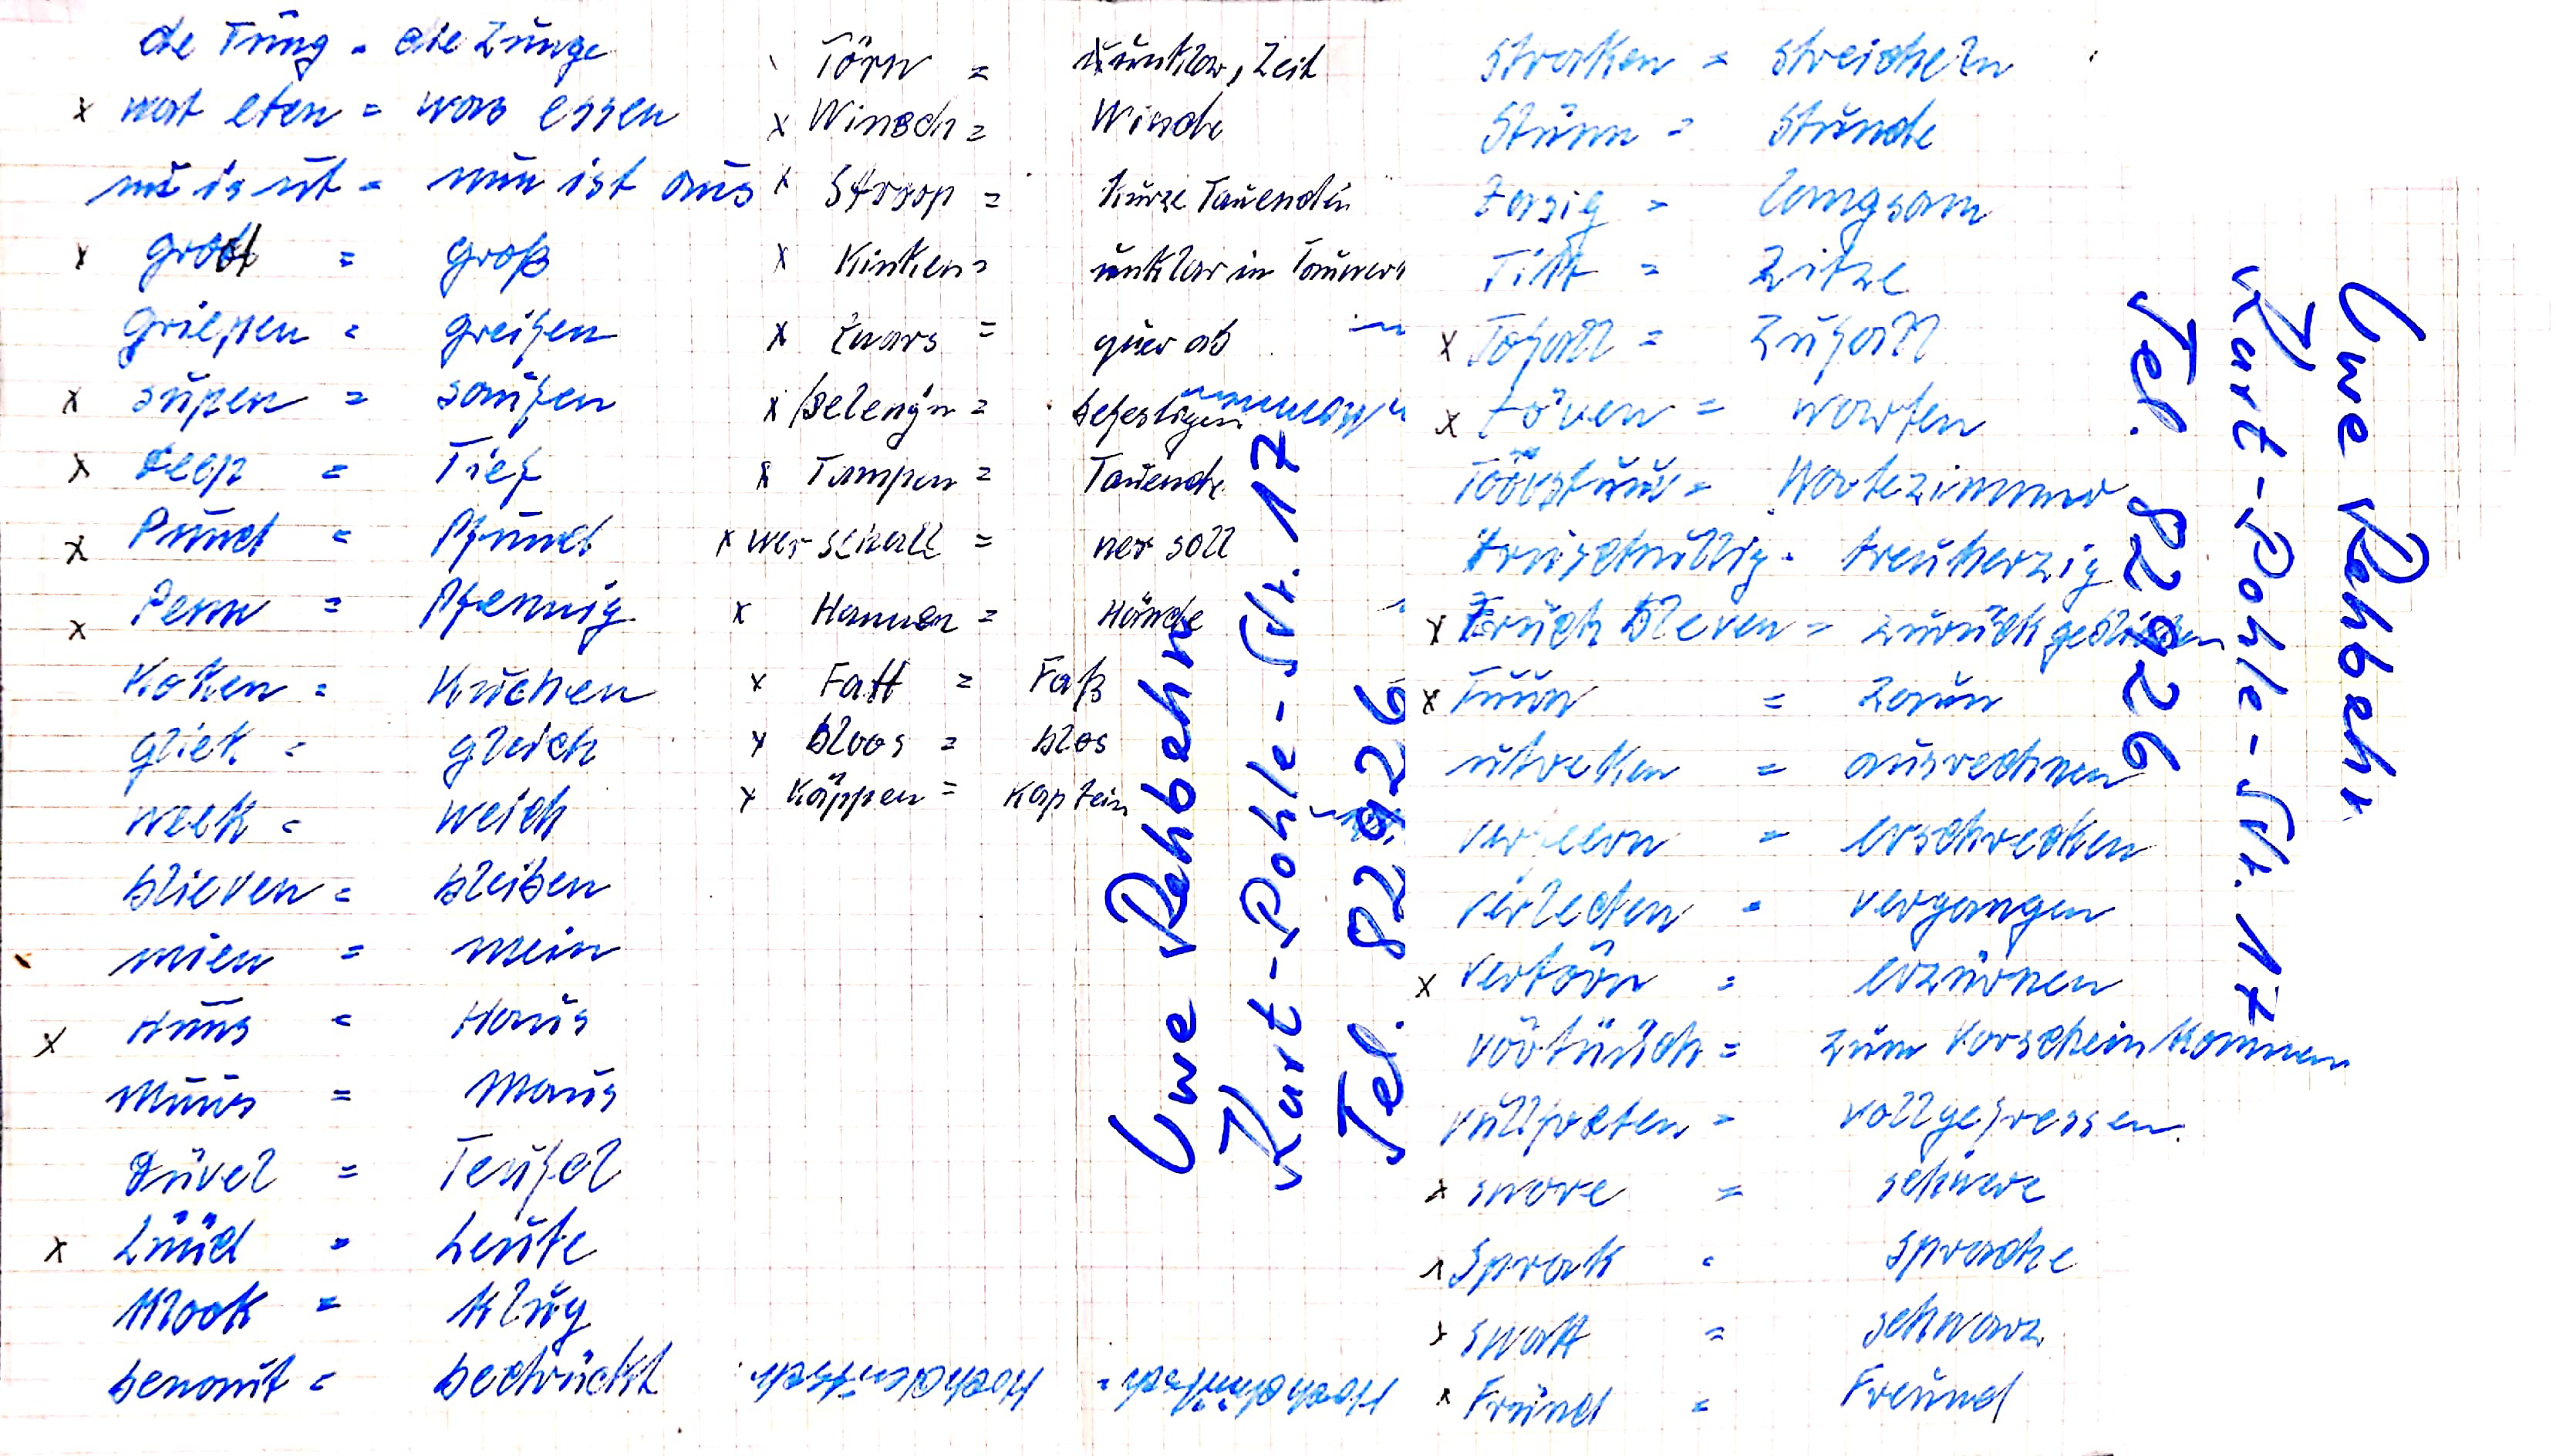 de Tung = die Zunge
x wat eten = was essen
nu is ut = nun ist aus
x groot = groß
griepen = greifen
x supen = saufen
x deep = Tief
x Pund = Pfund
x Penn = Pfennig
Koken = Kuchen
gliek = gleich
week = weich
blieven = bleiben
mien = mein
x Huus = Haus
Muus = Maus
Düvel = Teufel
x Lüüd = Leute
Klook = klug
benaut = bedrückt
Törn = unklar, Zeit
x Winsch = Winde
x Stroop = kurze Tauenden
x Kinken = unklar in Tauwerk
x Dwars = quer ab
x belegn = befestigen
x Tampen = Tauende
x wer schall = wer soll
x Hannen = Hände
x Fatt = Faß
x bloos = blos
x Käppen = Kaptein
Hochdeutsch
Plattdeutsch
Uwe Rehbehn
Kurt-Pohle-Str. 17
Tel. 82926
straken = streicheln
Stünn = Stunde
tasig = langsam
Titt = Zitze
x Tofall = Zufall
x töven = warten
Töövstuuv = Wartezimmer
truschullig = treuherzig
x trüch bleven = zurückgeblieben
x Tuun = Zaun
utreken = ausrechnen
verfeern = erschrecken
verleden = vergangen
x vertörn = erzürnen
vörtüüsch = zum Vorschein kommen
vullfreten = vollgefressen
x sware = schwere
x Sprak = Sprache
x swatt = schwarz
x Fründ = Freund
Uwe Rehbehn
Kurt-Pohle-Str. 17
Tel. 82926